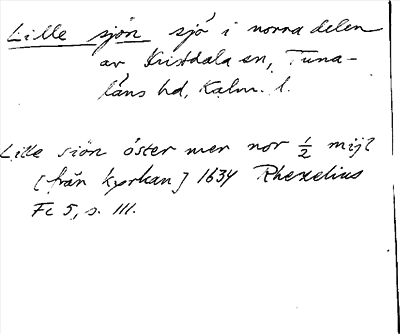 Lille sjön sjö i norra delen
av Kristdala sn, Tuna-
läns hd, Kalm. l.
Lille siön öster mer nor 1/2 mijl
[från kyrkan] 1634 Rhezelius
Fc 5, s. 111.